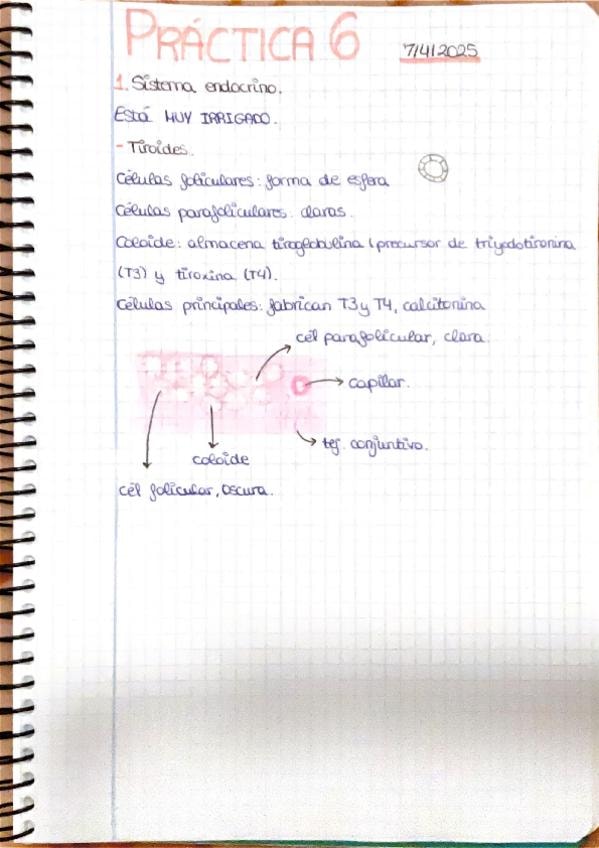 PRÁCTICA 6
7/4/2025
1. Sistema endocrino.
Está MUY IRRIGADO.
- Tiroides.
Células foliculares: forma de esfera
Células parafoliculares: claras.
Coloide: almacena tiroglobulina (precursor de triyodotironina
(T3) y tiroxina (T4).
Células principales: fabrican T3 y T4, calcitonina
cél parafolicular, clara.
capilar.
tej. conjuntivo.
coloide
cél folicular, oscura.